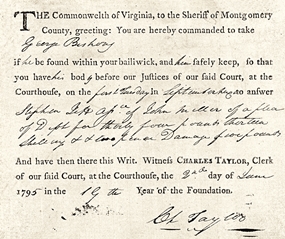 THE Commonwealth of Virginia, to the Sheriff of Montgomery
County, greeting: You are hereby commanded to take
George
if he be found within your bailiwick, and him safely keep, so that
you have his body before our Justices of our said Court, at the
Courthouse, on the first Tuesday in September next to answer
Stephen of John Miller of a plea
of Debt for thirty four pounds thirteen
shillings & Damage pounds
And have then there this Writ. Witness CHARLES TAYLOR, Clerk
of our said Court, at the Courthouse, the day of June
1795 in the 19th Year of the Foundation.
Ch Taylor